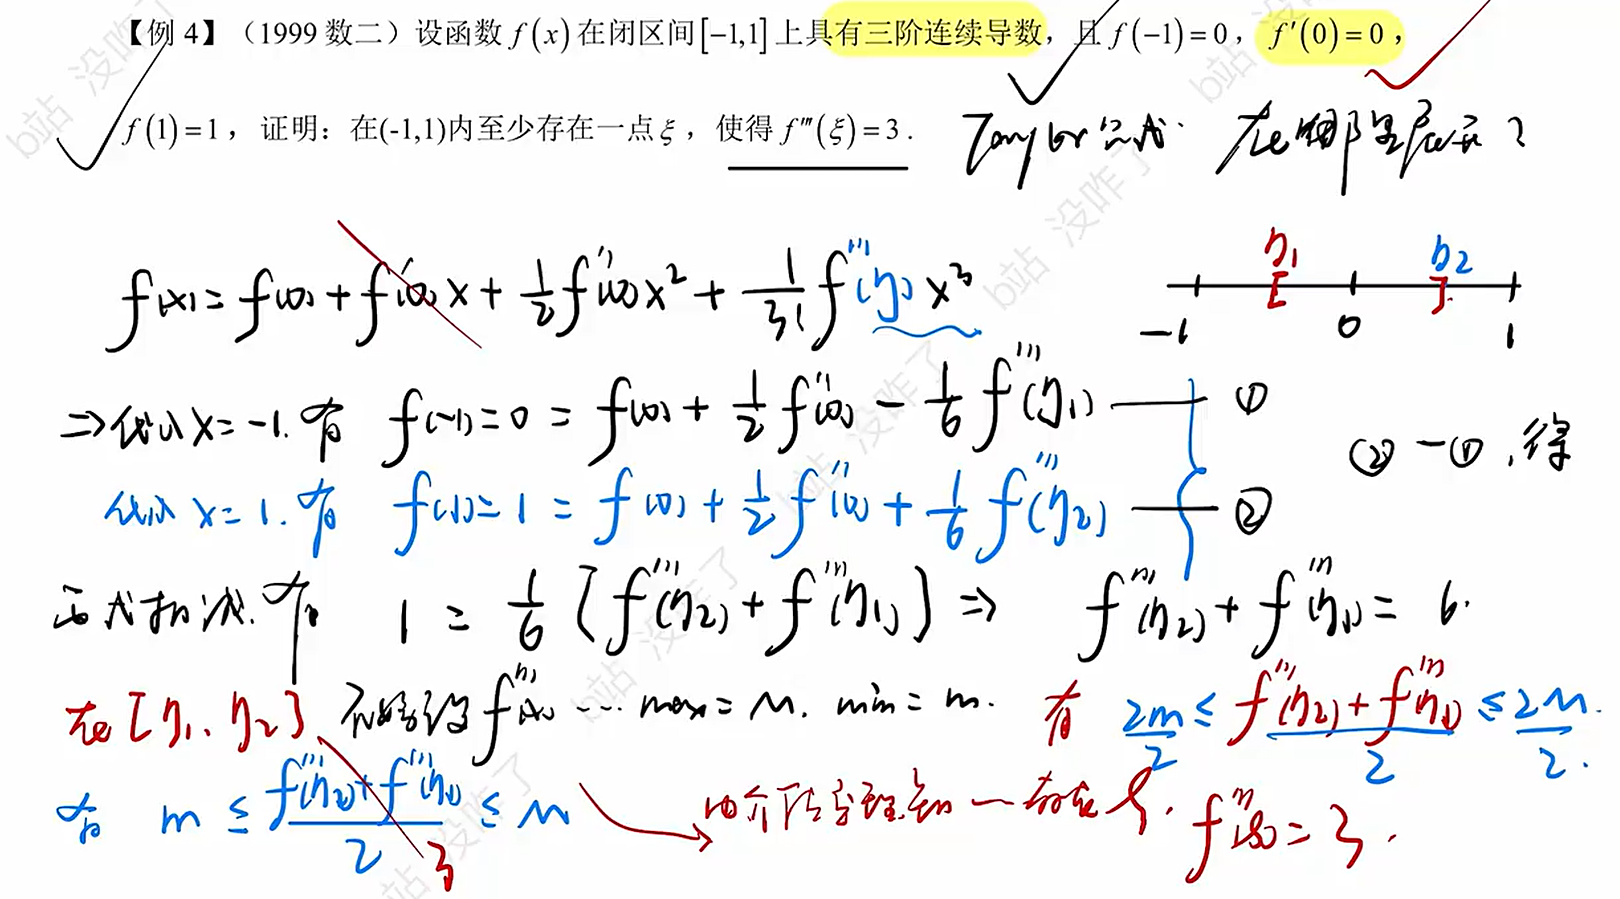 【例 4】（1999 数二）设函数 f(x) 在闭区间[-1,1] 上具有三阶连续导数，且 f(-1)=0，f'(0)=0，
f(1)=1，证明：在(-1,1)内至少存在一点ξ，使得 f'''(ξ)=3．
Taylor公式. 在哪里展开？
f(x) = f(0) + f'(0)x + 1/2 f''(0)x² + 1/3! f'''(η) x³
η₁ η₂
-1 0 1
⇒代入x=-1. 有 f(-1)=0 = f(0) + 1/2 f''(0) - 1/6 f'''(η₁) ——①
代入 x=1. 有 f(1)=1 = f(0) + 1/2 f''(0) + 1/6 f'''(η₂) ——②
②-①, 得
两式相减. 有 1 = 1/6 [f'''(η₂) + f'''(η₁)] ⇒ f'''(η₂) + f'''(η₁) = 6.
在[η₁, η₂], 不妨设 f'''(x) ... max=M. min=m. 有 2m/2 ≤ (f'''(η₂)+f'''(η₁))/2 ≤ 2M/2.
有 m ≤ (f'''(η₂)+f'''(η₁))/2 ≤ M
3
由介值定理知 一 存在ξ, f'''(ξ)=3.
b站 没咋了
b站 没咋了
b站 没咋了
b站 没咋了
b站 没咋了
b站 没咋了